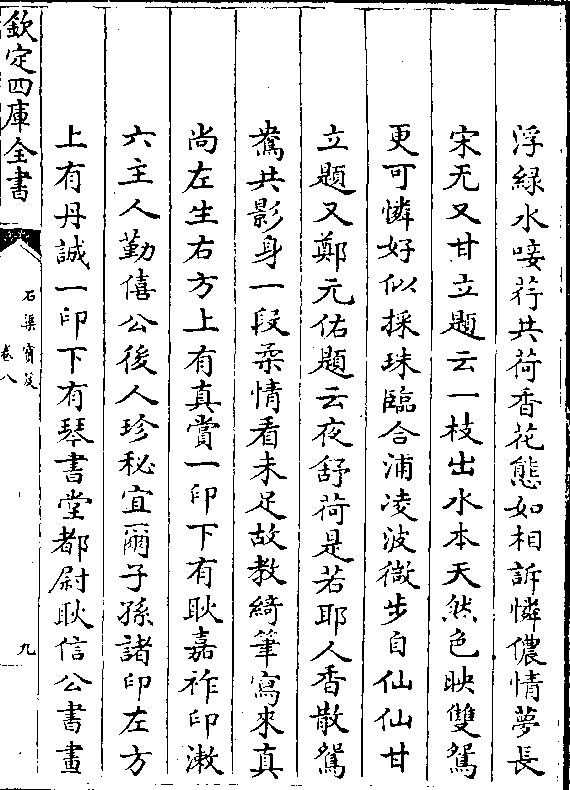 浮緑水唼荇共荷香花態如相訴憐儂情夢長
宋无又甘立題云一枝出水本天然色映雙鴛
更可憐好似採珠臨合浦凌波微步自仙仙甘
立題又鄭元佑題云夜舒荷是若耶人香散鴛
鴦共影身一段柔情看未足故教綺筆寫來真
尚左生右方上有真賞一印下有耿嘉祚印漱
六主人勤僖公後人珍秘宜爾子孫諸印左方
上有丹誠一印下有琴書堂都尉耿信公書畫
欽定四庫全書
石渠寶笈
卷八
九